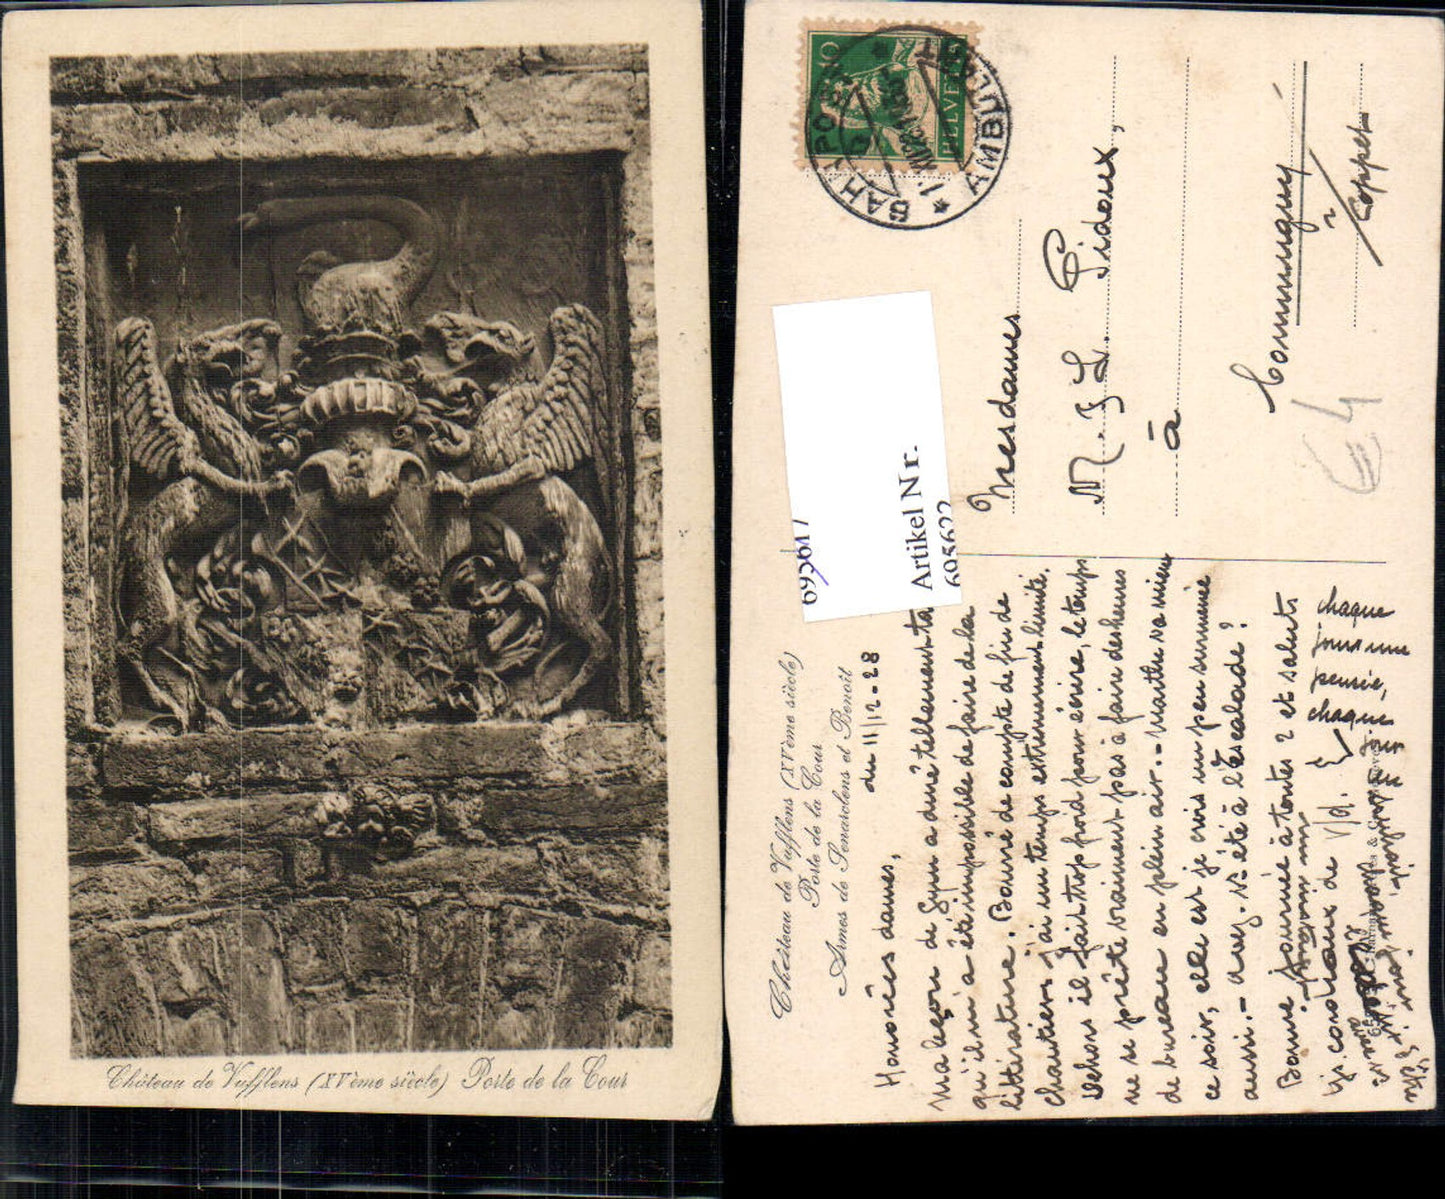 Château de Vufflens (XVème siècle) Porte de la Cour
HELVETIA
BAHNPOST
AMBULANT
Artikel Nr.
695622
695617
Château de Vufflens (XVème siècle)
Porte de la Cour
Armes de Senarclens et Benoît
Mesdames
M. & L. Pidoux,
à
Commugny
s/Coppet
du 11/12-28
Honorées dames,
Ma leçon de Gym a duré tellement ta
qu'il m'a été impossible de faire de la
littérature. Bourré de compte de fin de
chantiers j'ai un temps extrêmement limité.
Dehors il fait trop froid pour écrire, le temps
ne se prête vraiment pas à faire des heures
de bureau en plein air. - Marthe va mieux
ce soir, elle est je crois un peu
aussi. - Avez. Vs été à l'escalade?
Bonne journée à toutes 2 et saluts
de V/d.
chaque
jour une
pensée,
chaque
jour